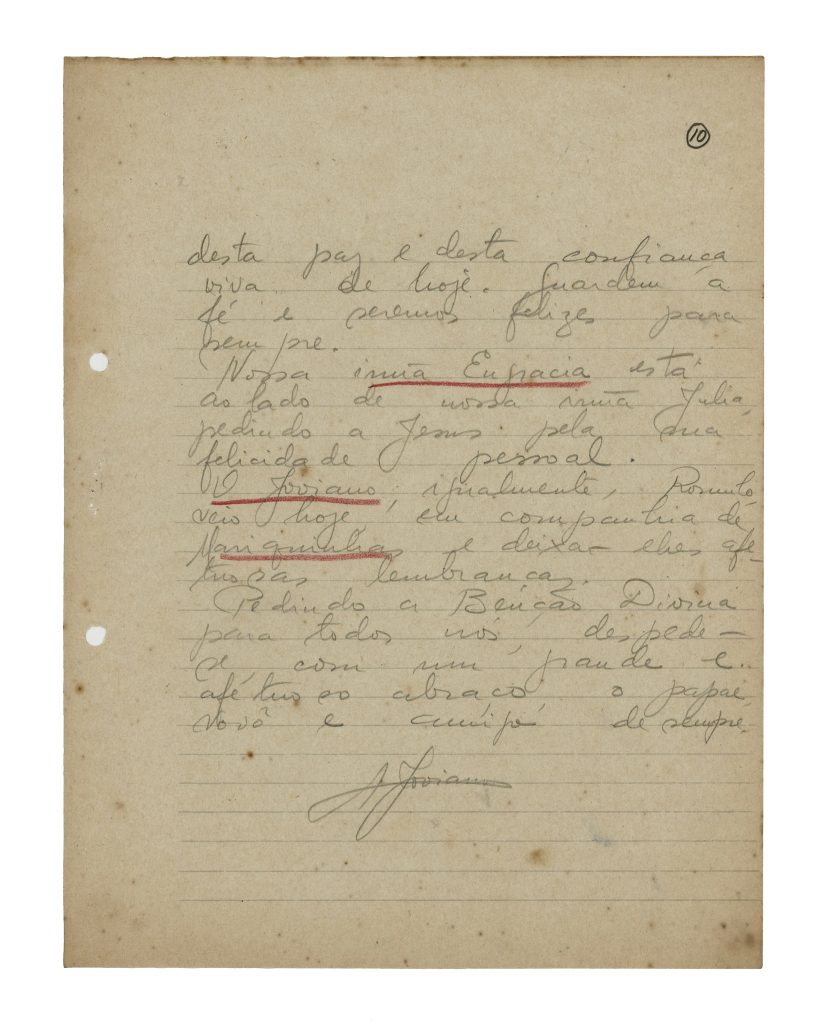 10
desta paz e desta confiança
viva de hoje. Guardem a
fé e seremos felizes para
sempre.
Nossa irmã Engracia está
ao lado de nossa irmã Julia,
pedindo a Jesus pela sua
felicidade pessoal.
O Joviano, igualmente, Romulo
veio hoje, em companhia de
Mariquinhas e deixa-lhes afe-
tuosas lembranças.
Pedindo a Benção Divina
para todos nós, despede-
se, com um grande e
afétuoso abraço o papae
vovô e amigo de sempre.
A Joviano